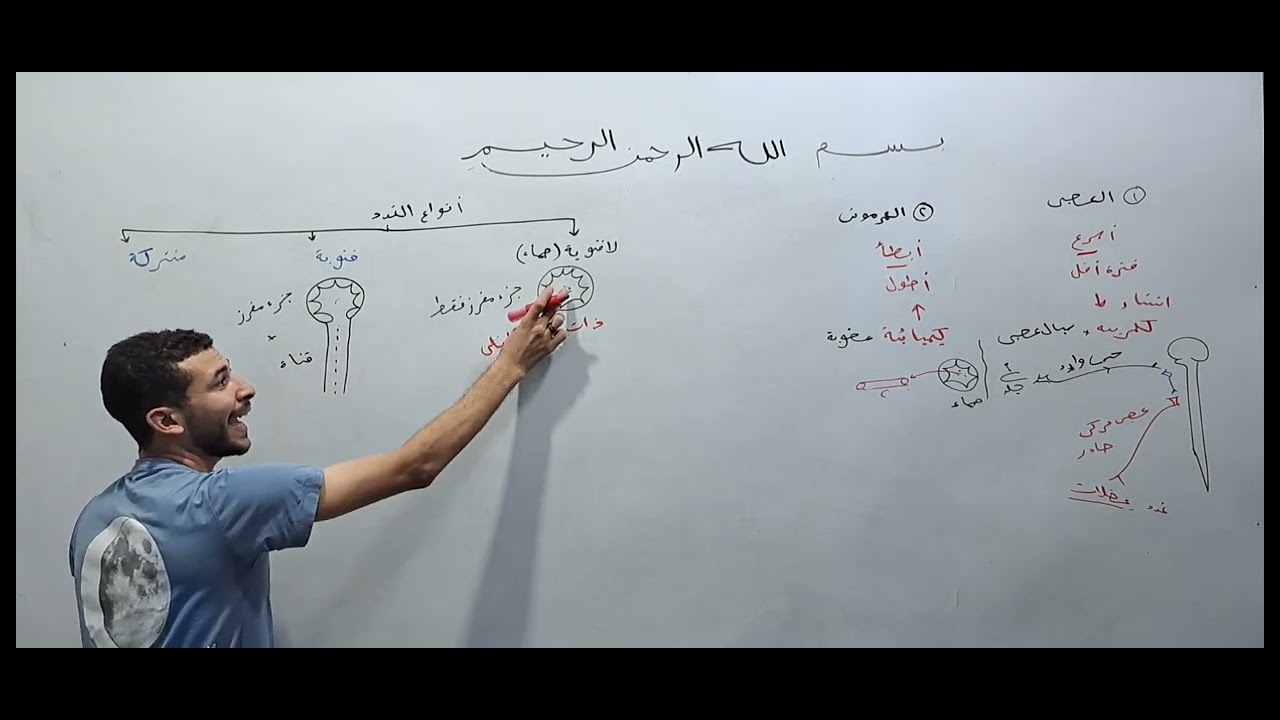 بسم الله الرحمن الرحيم
① العصبى
أسرع
فترة أقل
كهربية
سيالة عصبى
حسى وارد
جلد
عصب مركى
صادر
غدد عضلات
② الهرمون
أبطأ
أطول
كيميائية عضوية
صماء
أنواع الغدد
لاقنوية (صماء)
جزء مفرز فقط
ذات
قنوية
جزء مفرز
+
قناة
مشتركة